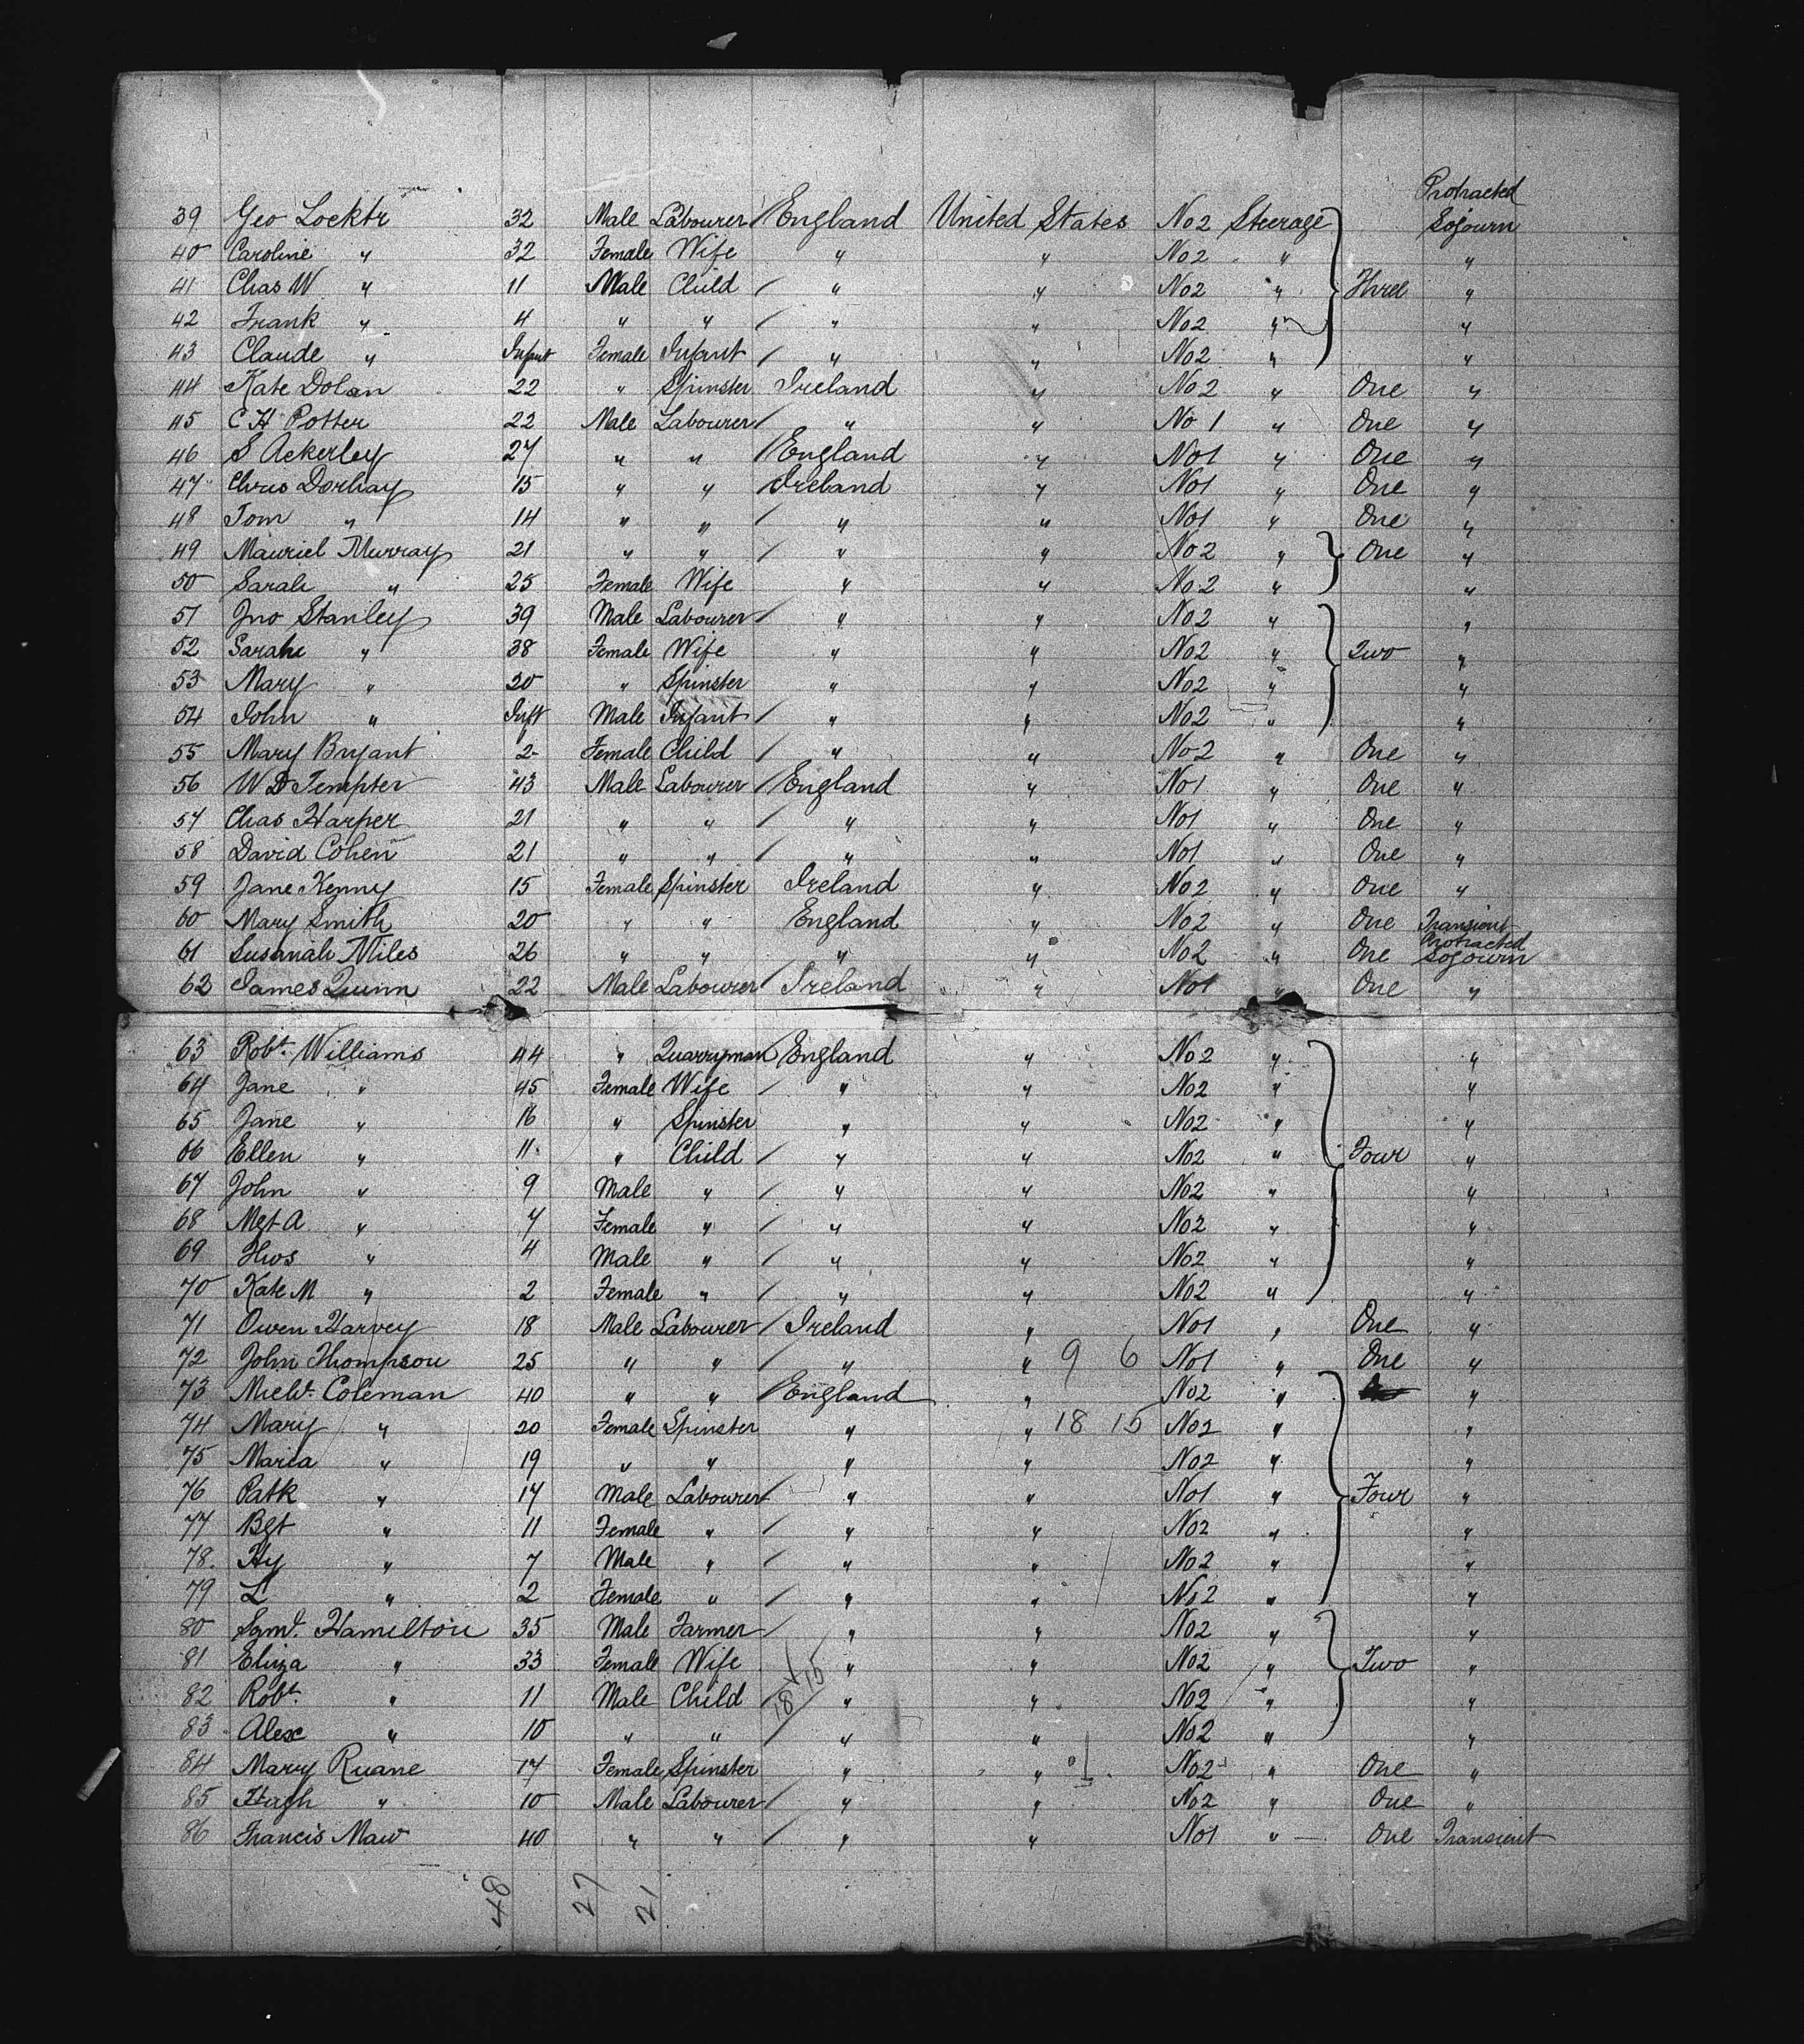 Protracted
39 Geo Locktr 32 Male Labourer / England United States No 2 Steerage Sojourn
40 Caroline " 32 Female Wife " " No 2 " "
41 Chas W " 11 Male Child / " " No 2 " Three "
42 Frank " 4 " " / " " No 2 " "
43 Claude " Infant Female Infant / " " No 2 " "
44 Kate Dolan 22 " Spinster Ireland " No 2 " One "
45 C H Potter 22 Male Labourer / " " No 1 " One "
46 S Ackerley 27 " " / England " No 1 " One "
47 Chris Dorhay 15 " " / Ireland " No 1 " One "
48 Tom " 14 " " / " " No 1 " One "
49 Mauriel Murray 21 " " / " " No 2 " One "
50 Sarah " 25 Female Wife " " No 2 " "
51 Jno Stanley 39 Male Labourer / " " No 2 " "
52 Sarah " 38 Female Wife " " No 2 " Two "
53 Mary " 20 " Spinster " " No 2 " "
54 John " Inft Male Infant / " " No 2 " "
55 Mary Bryant 2 Female Child / " " No 2 " One "
56 W D Tempter 43 Male Labourer / England " No 1 " One "
57 Chas Harper 21 " " / " " No 1 " One "
58 David Cohen 21 " " / " " No 1 " One "
59 Jane Kenny 15 Female Spinster Ireland " No 2 " One "
60 Mary Smith 20 " " England " No 2 " One Transient
61 Susanah Miles 26 " " " " No 2 " One Protracted Sojourn
62 James Quinn 22 Male Labourer / Ireland " No 1 " One "
63 Robt. Williams 44 " Quarryman / England " No 2 " "
64 Jane " 45 Female Wife / " " No 2 " "
65 Jane " 16 " Spinster " " No 2 " "
66 Ellen " 11 " Child / " " No 2 " Four "
67 John " 9 Male " / " " No 2 " "
68 Mgt A " 7 Female " / " " No 2 " "
69 Thos " 4 Male " / " " No 2 " "
70 Kate M " 2 Female " / " " No 2 " "
71 Owen Harvey 18 Male Labourer / Ireland " No 1 " One "
72 John Thompson 25 " " / " " 9 6 No 1 " One "
73 Michl. Coleman 40 " " / England " No 2 " "
74 Mary " 20 Female Spinster " " 18 15 No 2 " "
75 Maria " 19 " " " " No 2 " "
76 Patk " 17 Male Labourer " " No 1 " Four "
77 Bgt " 11 Female " / " " No 2 " "
78 Hy " 7 Male " / " " No 2 " "
79 L " 2 Female " / " " No 2 " "
80 Saml. Hamilton 35 Male Farmer / " " No 2 " "
81 Eliza " 33 Female Wife " " No 2 " Two "
82 Robt. " 11 Male Child / 18 15 " " No 2 " "
83 Alex " 10 " " / " " No 2 " "
84 Mary Ruane 17 Female Spinster " " No 2 " One "
85 Hugh " 10 Male Labourer / " " No 2 " One "
86 Francis Maw 40 " " / " " No 1 " One Transient
48 27 21